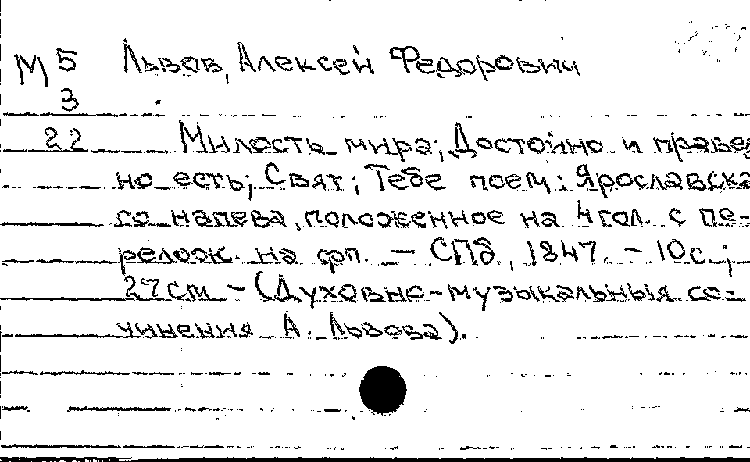 М 5 Львов, Алексей Федорович
3
22 Милость мира; Достойно и правед
но есть; Свят; Тебе поем: Ярославска
го напева, положенное на 4 гол. с пе-
релож. на фп. – СПб, 1847. – 10с.;
27см – (Духовно-музыкальныя со-
чинения А. Львова).